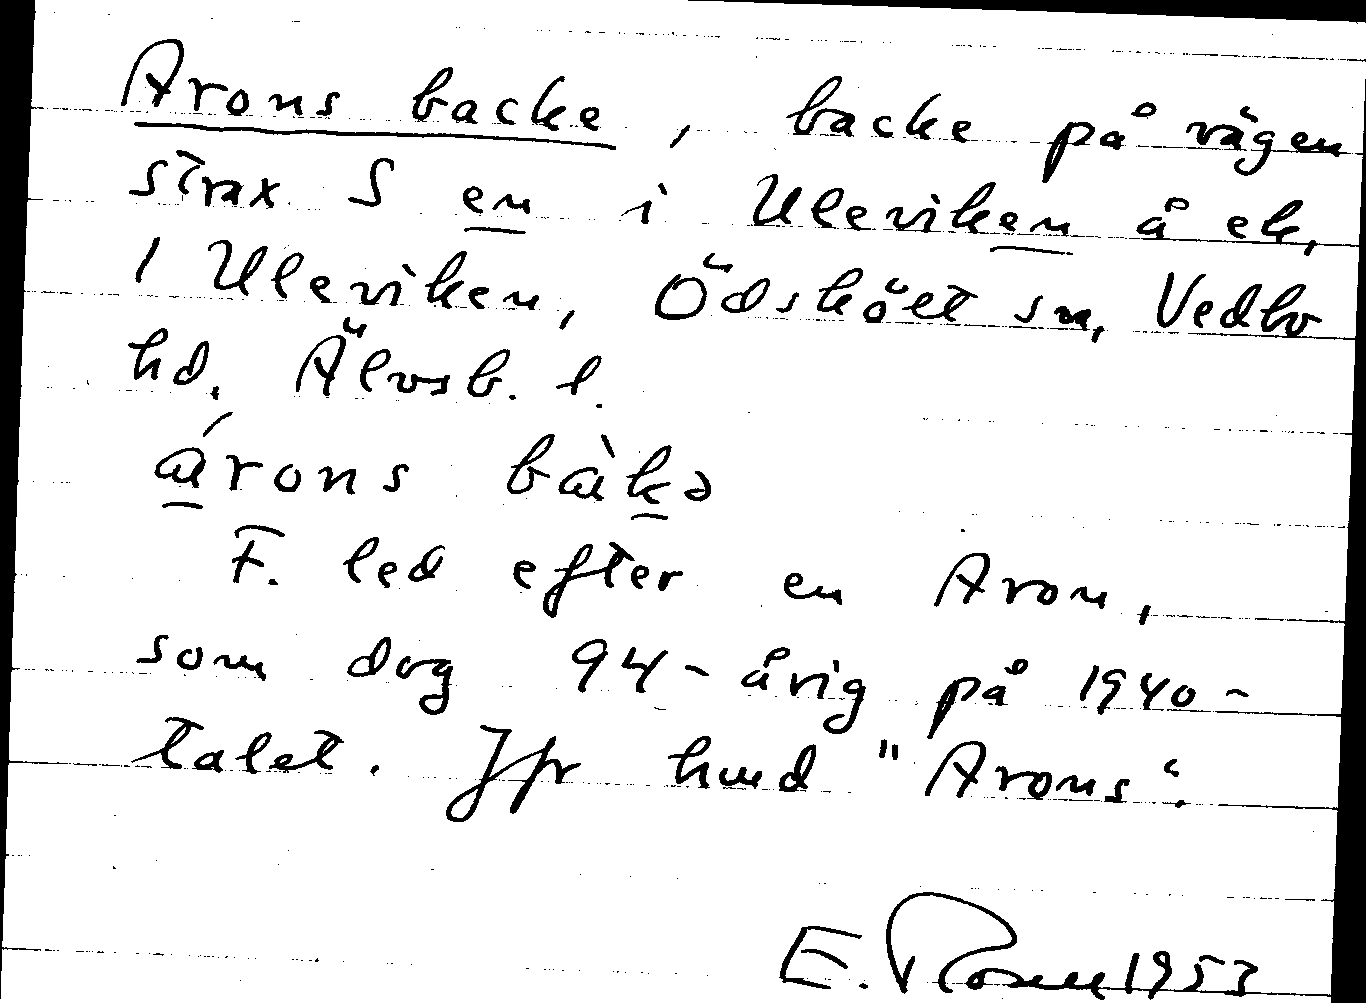 Arons backe, backe på vägen
strax S en i Uleviken å ek,
1 Uleviken, Ödskölt sn, Vedbo
hd. Älvsb. l.
árons bàkə
F. led efter en Aron,
som dog 94-årig på 1940-
talet. Jfr hmd "Arons".
E. Rosell 1953